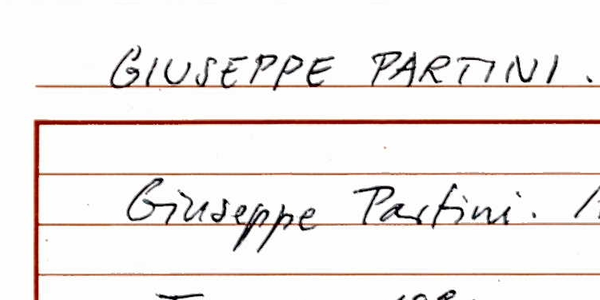 GIUSEPPE PARTINI.
Giuseppe Partini.